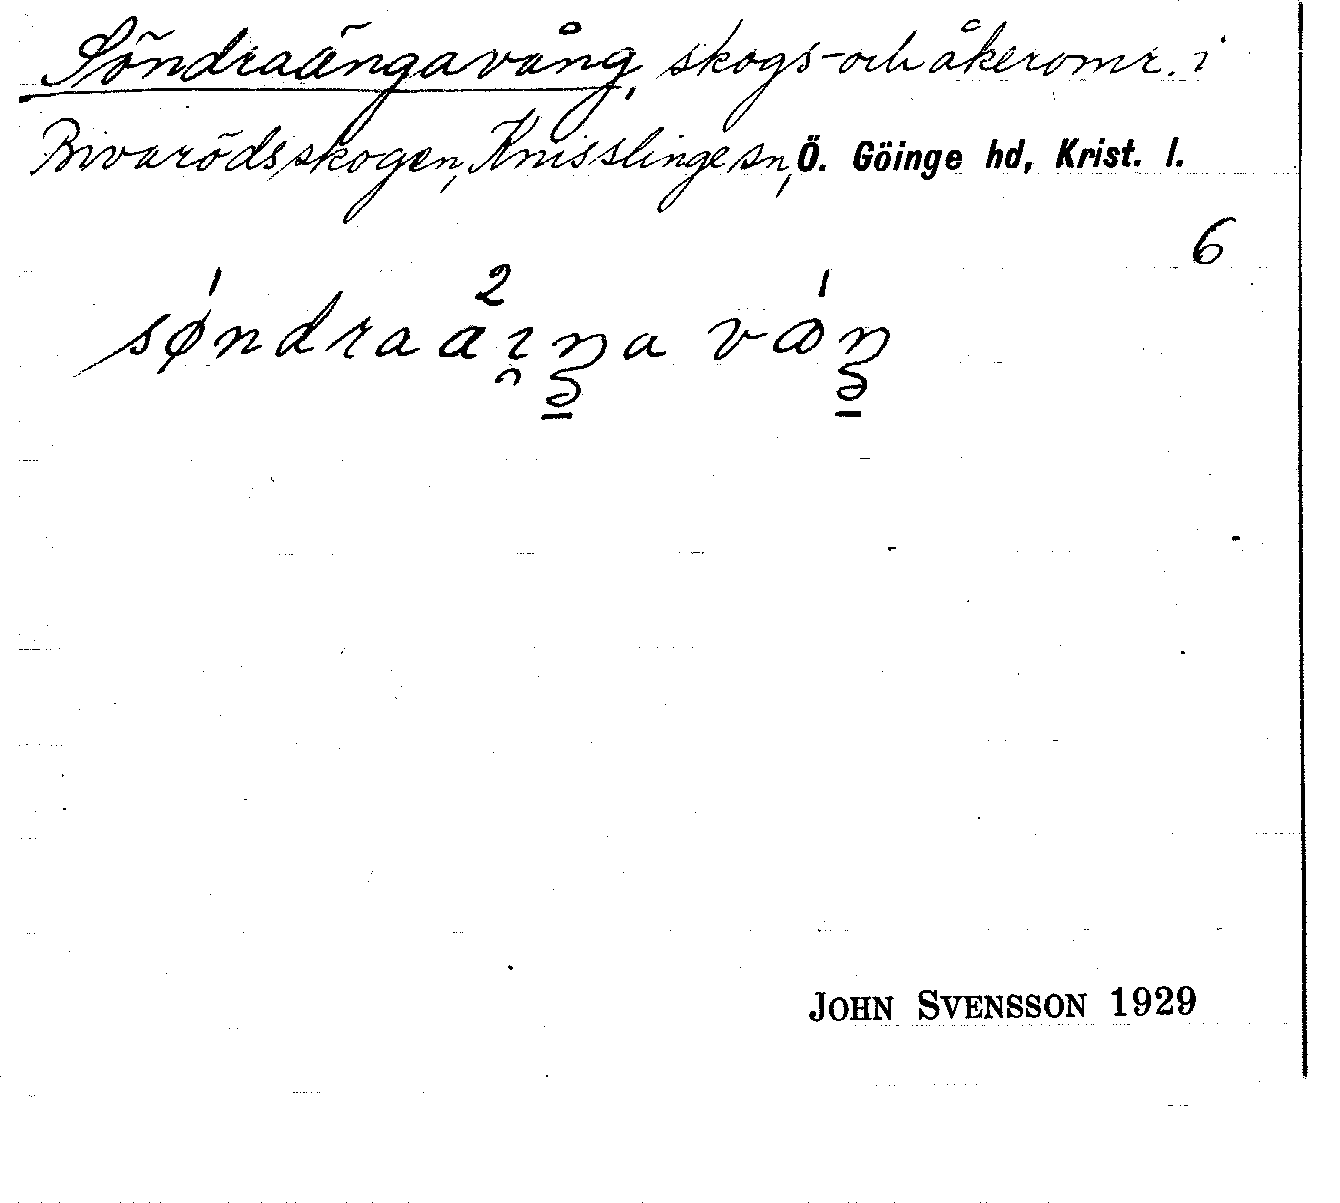 Söndraängavång, skogs- och åkeromr. i
Bivarödsskogen, Knisslinge sn, Ö. Göinge hd, Krist. l.
6
JOHN SVENSSON 1929